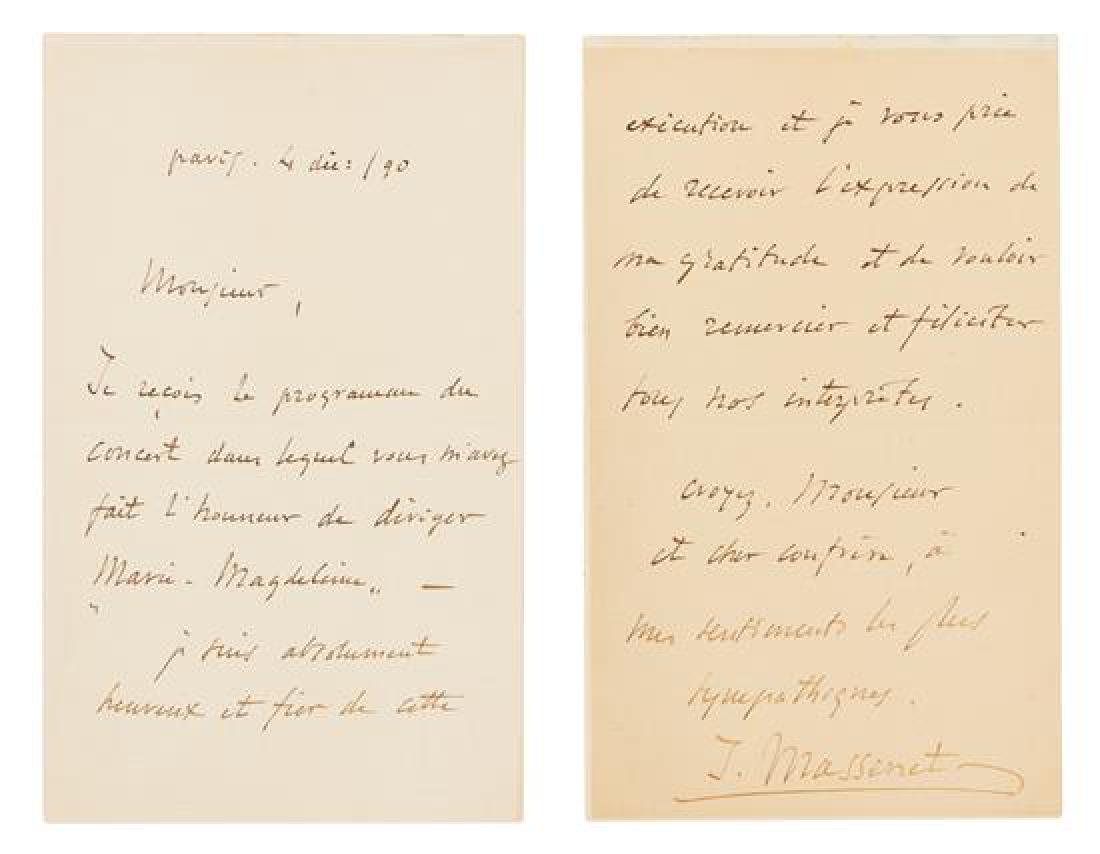 paris. 4 déc: /90
Monsieur,
Je reçois le programme du
concert dans lequel vous m'avez
fait l'honneur de diriger
"Marie-Magdeleine" —
je suis absolument
heureux et fier de cette
exécution et je vous prie
de recevoir l'expression de
ma gratitude et de vouloir
bien remercier et féliciter
tous nos interprètes.
Croyez, Monsieur
et cher confrère, à
mes sentiments les plus
sympathiques.
J. Massenet